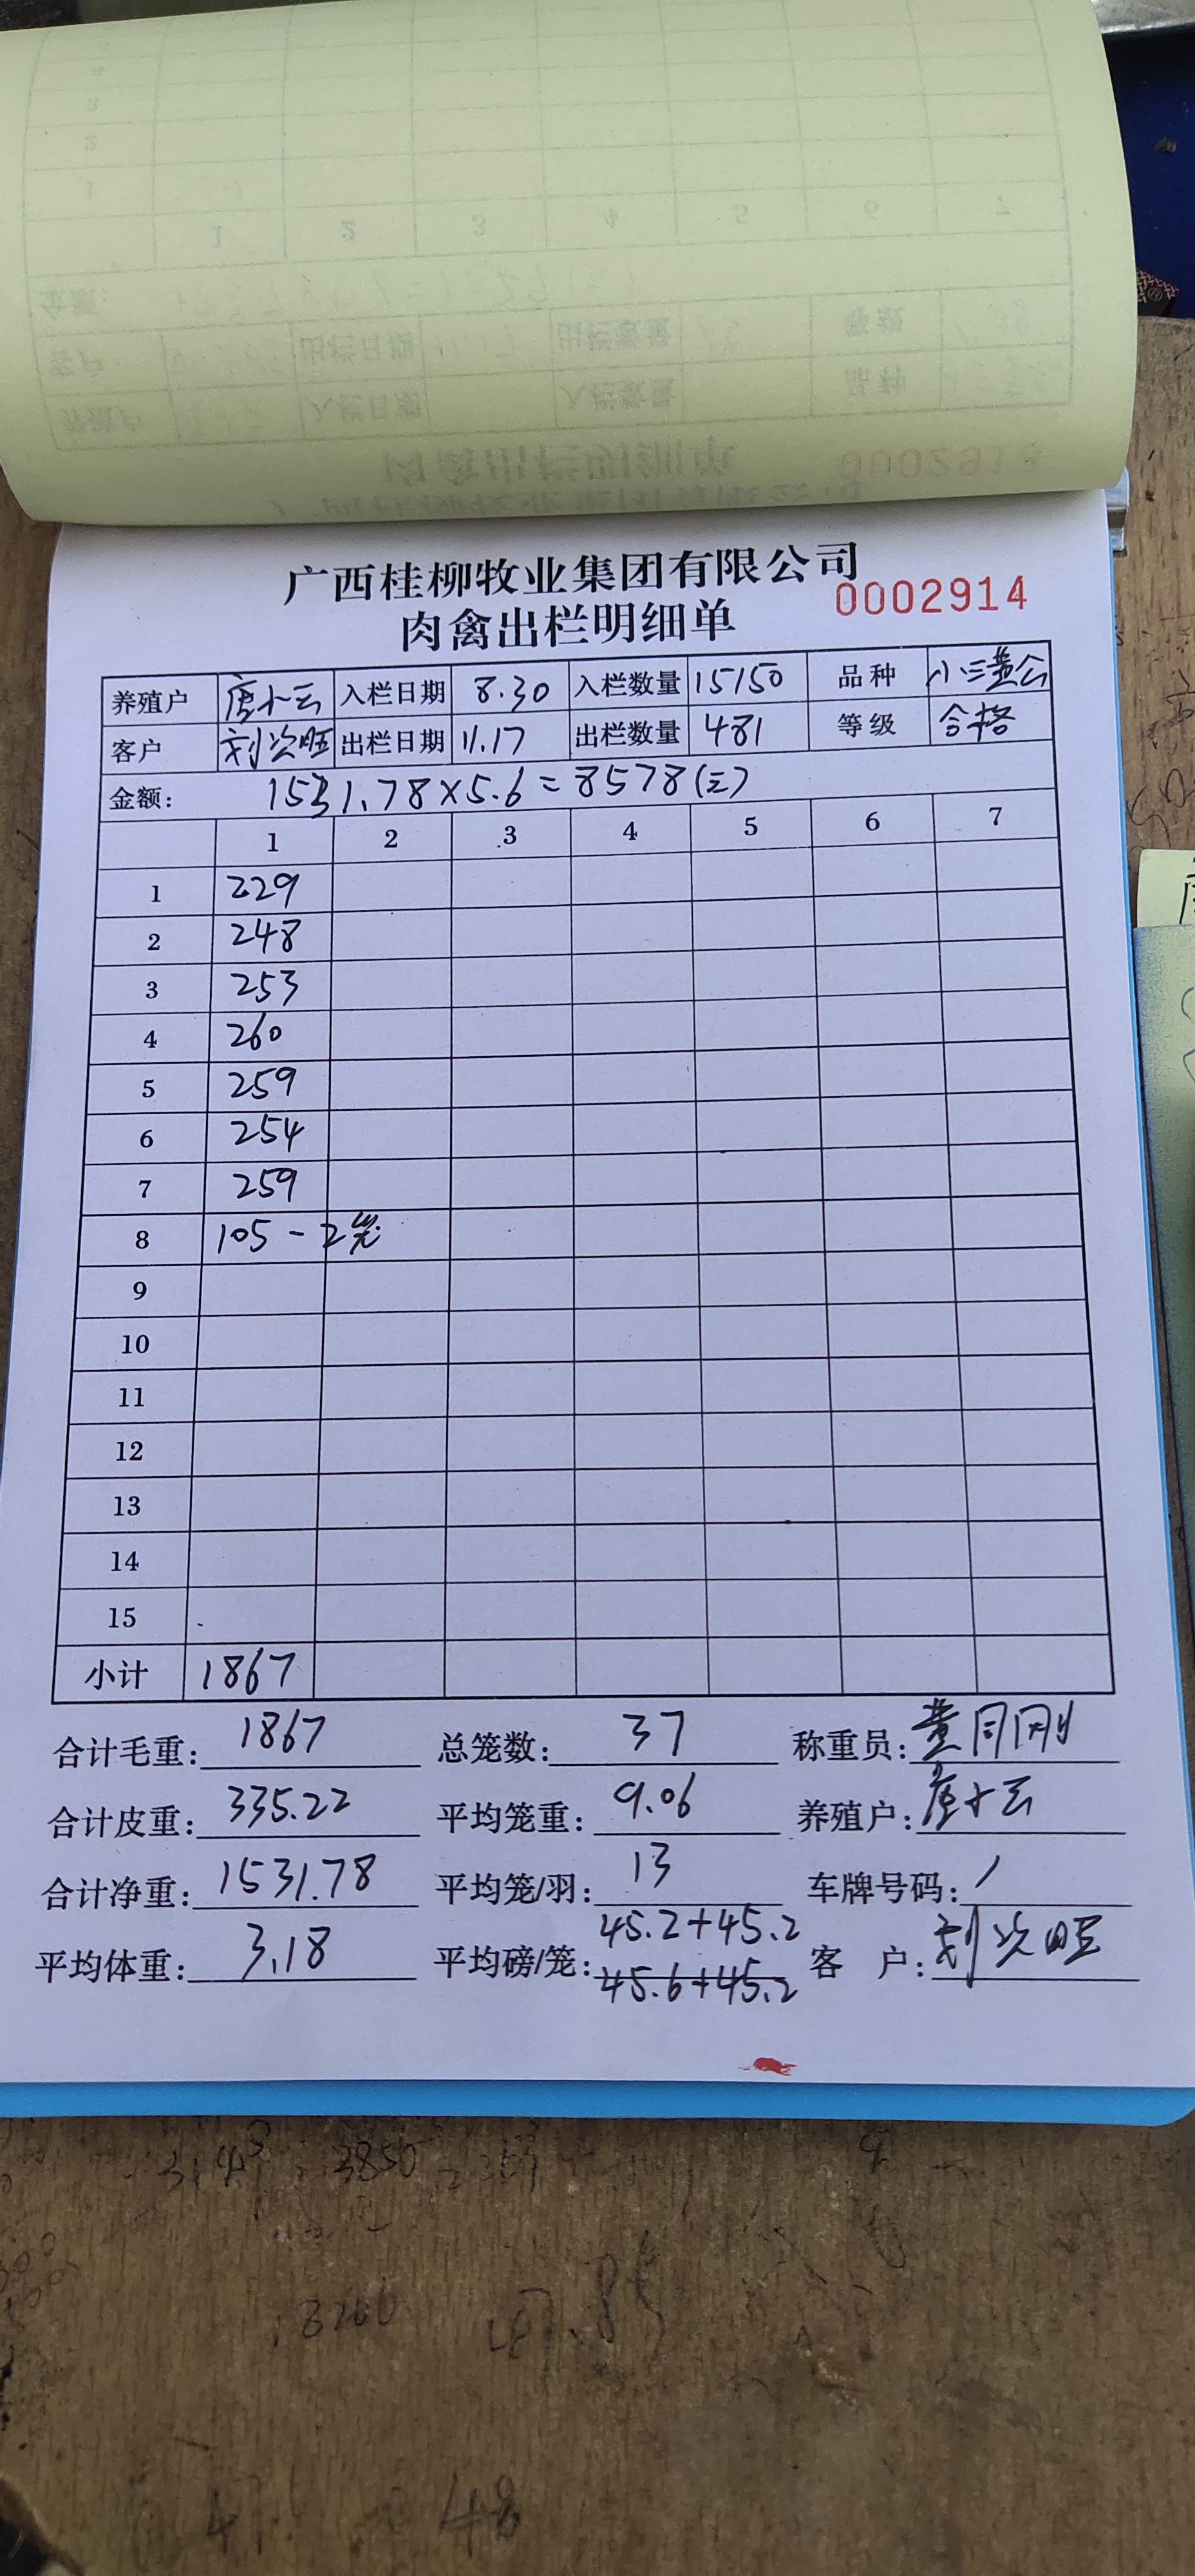 广西桂柳牧业集团有限公司
肉禽出栏明细单 0002914
养殖户 唐小云 入栏日期 8.30 入栏数量 15150 品种 小三黄公
客户 刘次旺 出栏日期 11.17 出栏数量 481 等级 合格
金额: 1531.78×5.6=8578(元)
1 2 3 4 5 6 7
1 229
2 248
3 253
4 260
5 259
6 254
7 259
8 105-2笼
9
10
11
12
13
14
15
小计 1867
合计毛重: 1867 总笼数: 37 称重员:
合计皮重: 335.22 平均笼重: 9.06 养殖户: 唐小云
合计净重: 1531.78 平均笼/羽: 13 车牌号码: /
平均体重: 3.18 平均磅/笼: 45.2+45.2 45.6+45.2 客 户: 刘次旺